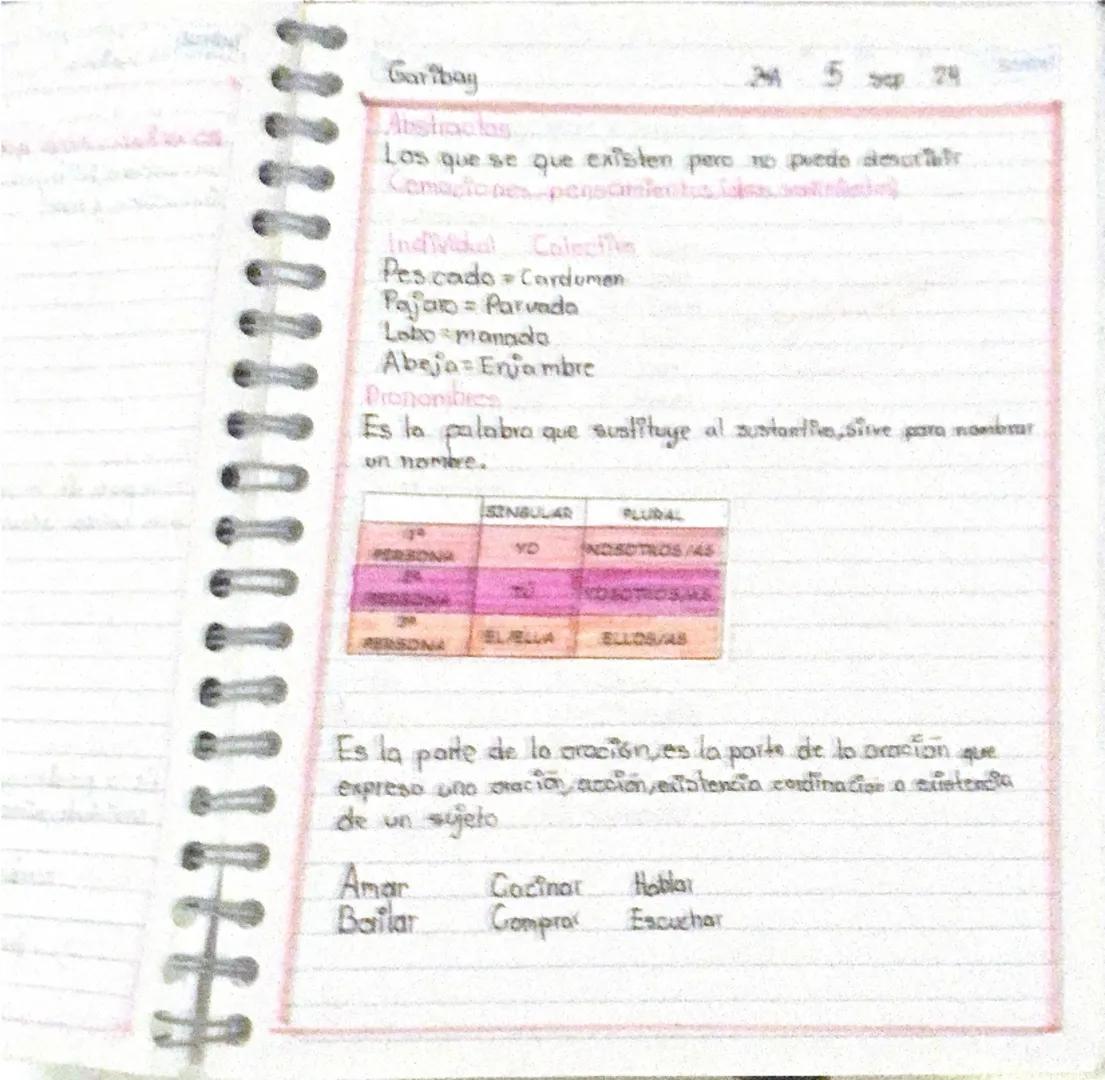 Garibay 5 sep 24
Abstractos
Los que se que existen pero no puedo describir
pensamientos
Individual Colectivo
Pescado = Cardumen
Pajaro = Parvada
Lobo = manada
Abeja = Enjambre
Pronombres
Es la palabra que sustituye al sustantivo, sirve para nombrar
un nombre.
SINGULAR PLURAL
1ª PERSONA YO NOSOTROS/AS
2ª PERSONA TÚ VOSOTROS/AS
3ª PERSONA EL/ELLA ELLOS/AS
Es la parte de la oración, es la parte de la oración que
expresa una oración, acción, existencia o existencia
de un sujeto
Amar Cocinar Hablar
Bailar Comprar Escuchar